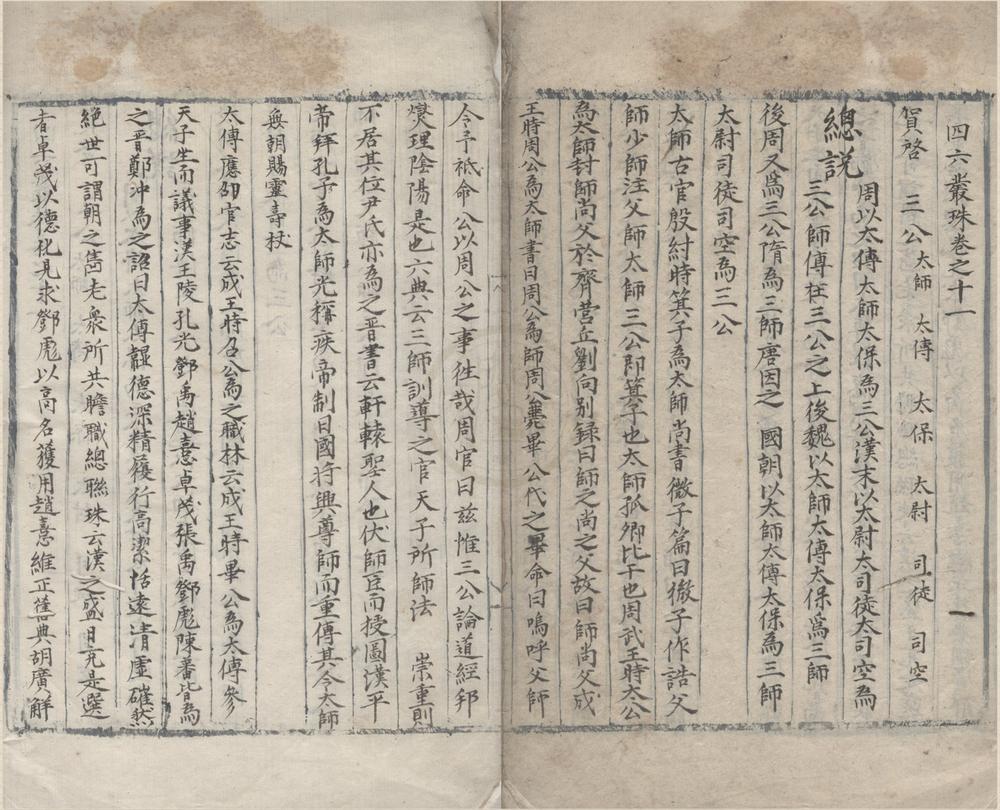 四六叢珠卷之十一 一
賀啓 三公 太師 太傅 太保 太尉 司徒 司空
總說 周以太傅太師太保為三公漢末以太尉太司徒太司空為
三公師傅在三公之上後魏以太師太傅太保爲三師
後周又爲三公隋為三師唐因之 國朝以太師太傅太保為三師
太尉司徒司空為三公
太師古官殷紂時箕子為太師尚書微子篇曰微子作誥父
師少師注父師太師三公即箕子也太師孤卿比干也周武王時太公
為太師封師尚父於齊營丘劉向别録曰師之尚之父故曰師尚父成
王時周公為太師書曰周公為師周公薨畢公代之畢命曰嗚呼父師
今予袛命公以周公之事徃哉周官曰玆惟三公論道經邦
爕理陰陽是也六典云三師訓導之官天子所師法 崇重則
不居其位尹氏亦為之晋書云軒轅聖人也伏師臣而授圖漢平
帝拜孔子為太師光稱疾帝制曰國将興尊師而重傅其令太師
無朝賜靈壽杖
太傅應卲官志云成王時召公為之職林云成王時畢公為太傅參
天子坐而議事漢王陵孔光鄧禹趙憙卓茂張禹鄧彪陳蕃皆為
之晋鄭冲為之詔曰太傅韞德深精履行高潔恬遠清虛確然
絶世可謂朝之雋老衆所共瞻職總聯珠云漢之盛日充是選
者卓茂以德化見求鄧彪以高名獲用趙憙維正舊典胡廣解